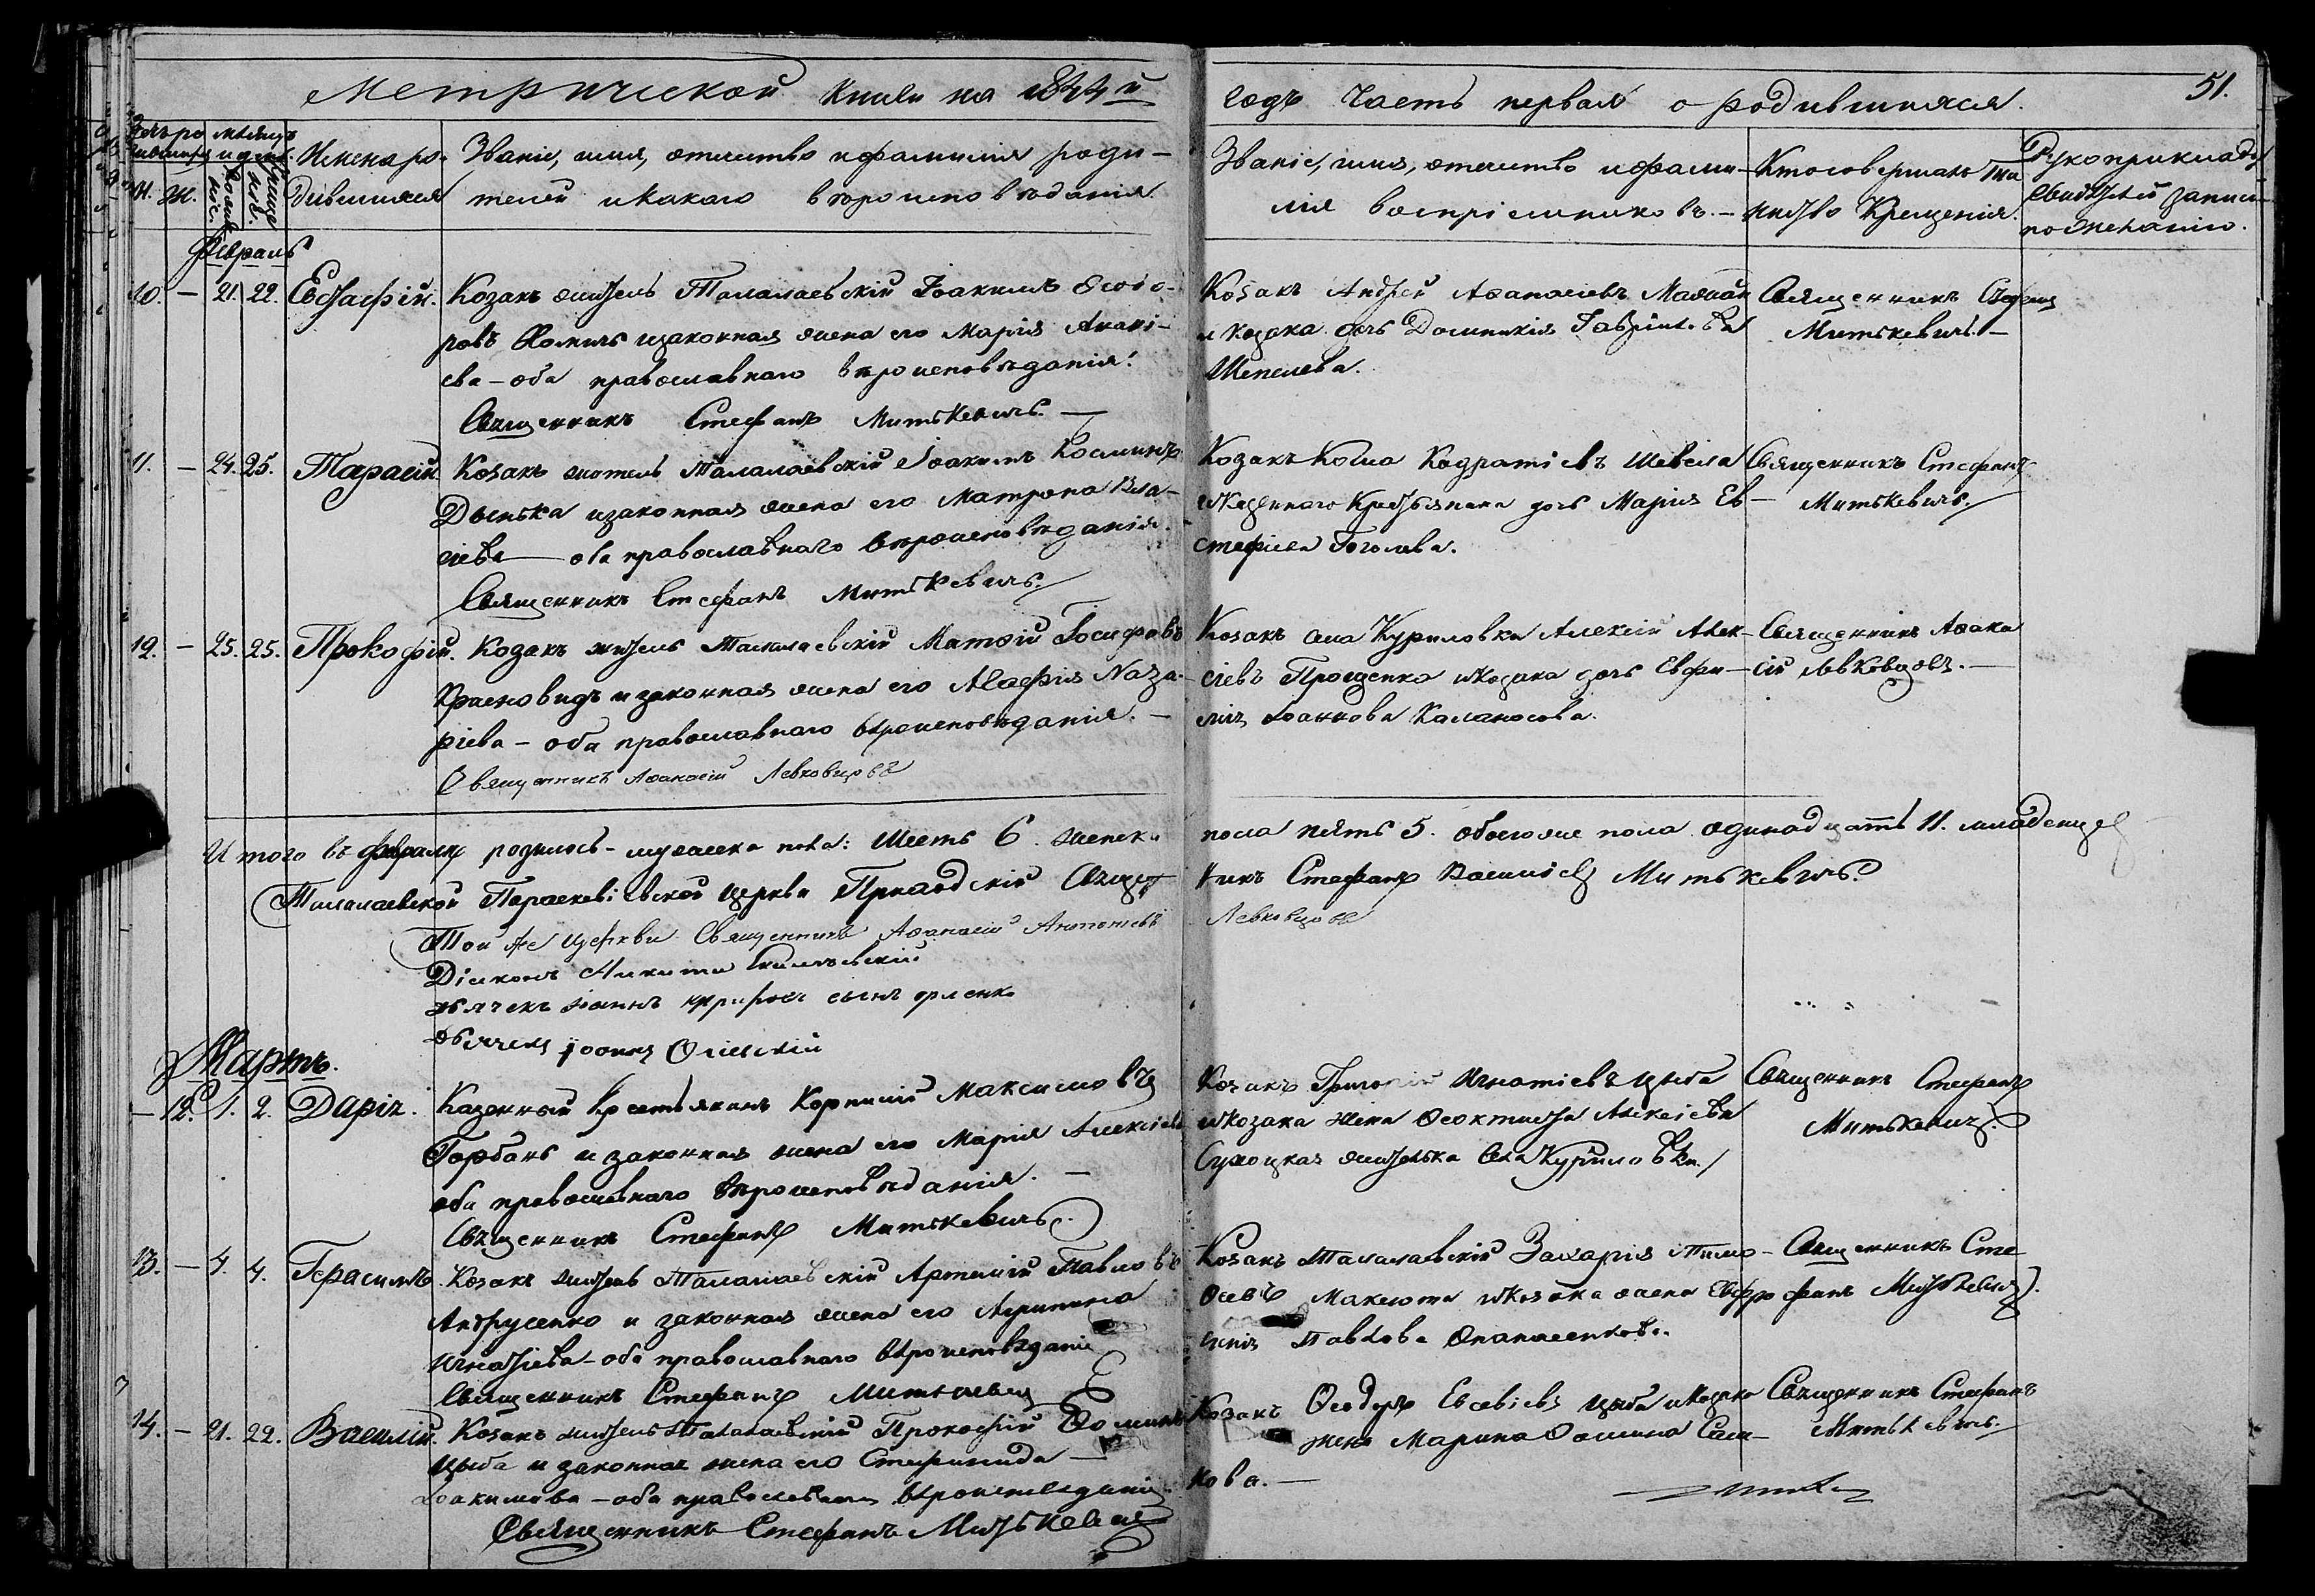 Метрической Книги на 1844й
годъ Часть первая о родившихся.
51.
Имена ро-
дившихся
Званіе, имя, отчество и фамилія роди-
телей и какого вѣроисповѣданія.
Званіе, имя, отчество и фами-
лія воспріемниковъ.
Кто совершалъ таи
нство Крещенія.
Рукоприклад
свидѣтелей записи
по желанію.
М. Ж.
Февраль
10. — 21. 22. Евстафій. Козакъ житель Талалаевскій Іоакимъ Ѳеодо-
ровъ и законная жена его Марія Анані-
ева – оба православнаго вѣроисповѣданія.
Священникъ Стефанъ Митькевичъ. —
Козакъ Андрей Аѳанасіевъ
и козака дочь Домникія Гавріилова
Шепелева.
Священникъ Стефанъ
Митькевичъ. —
11. — 24. 25. Тарасій. Козакъ житель Талалаевскій Іоакимъ Косминъ
Дынька и законная жена его Матрона Вла-
сіева — оба православнаго вѣроисповѣданія.
Священникъ Стефанъ Митькевичъ.
Козакъ Косма Кодратіевъ Шевела
и Казенного Крестьянина дочь Марія Ев-
стафіева Гоголева.
Священникъ Стефанъ
Митькевичъ.
12. — 25. 25. Прокофій. Козакъ житель Талалаевскій Матѳій Іосифовъ
Красновидъ и законная жена его Агафія Наза-
ріева – оба православнаго вѣроисповѣданія. —
Священникъ Аѳанасій Левковцовъ
Козакъ села Куриловки Алексій Алек-
сіевъ Прощенко и козака дочь Евфи-
мія Іоаннова Каланосова.
Священникъ Аѳана
сій Левковцовъ. —
Итого въ февралѣ родилось – мужеска пола: шесть 6. женска
пола пять 5. обоего пола одинадцать 11. младенцевъ
Талалаевской Параскевіевской Церкви Приходскій Священ
никъ Стефанъ Василіевъ Митькевичъ.
Той же Церкви Священникъ Аѳанасій Антоніевъ
Левковцовъ
Діаконъ Никита
дьячекъ Іоаннъ сынъ орленко
Іоаннъ
Мартъ.
— 12. 1. 2. Дарія. Казенный Крестьянинъ Корнилій Максимовъ
Горбань и законная жена его Марія Алексіева
оба православнаго вѣроисповѣданія. —
Священникъ Стефанъ Митькевичъ.
Козакъ Григорій Игнатіевъ Цыба
и козака жена Ѳеоктиста Алексіева
Сухоцкая жителька села Куриловки.
Священникъ Стефанъ
Митькевичъ.
13. — 4. 4. Герасимъ. Козакъ житель Талалаевскій Артемій Павловъ
Андрусенко и законная жена его Агрипина
Игнатіева – оба православнаго вѣроисповѣданія
Священникъ Стефанъ Митькевичъ
Козакъ Талалаевскій Захарія Тимо-
ѳеевъ Макшота и козака жена Евфро
синія Павлова Опанасенкова.
Священникъ Сте
фанъ Митькевичъ.
14. — 21. 22. Василій. Козакъ житель Талалаевскій Прокофій Ѳоминъ
Цыба и законная жена его Стефанида —
Іоакимова – оба православнаго вѣроисповѣданія.
Священникъ Стефанъ Митькевичъ
Козакъ Ѳеодоръ Евсевіевъ Цыба и козака
жена Марина Ѳомина
кова. —
Священникъ Стефанъ
Митькевичъ